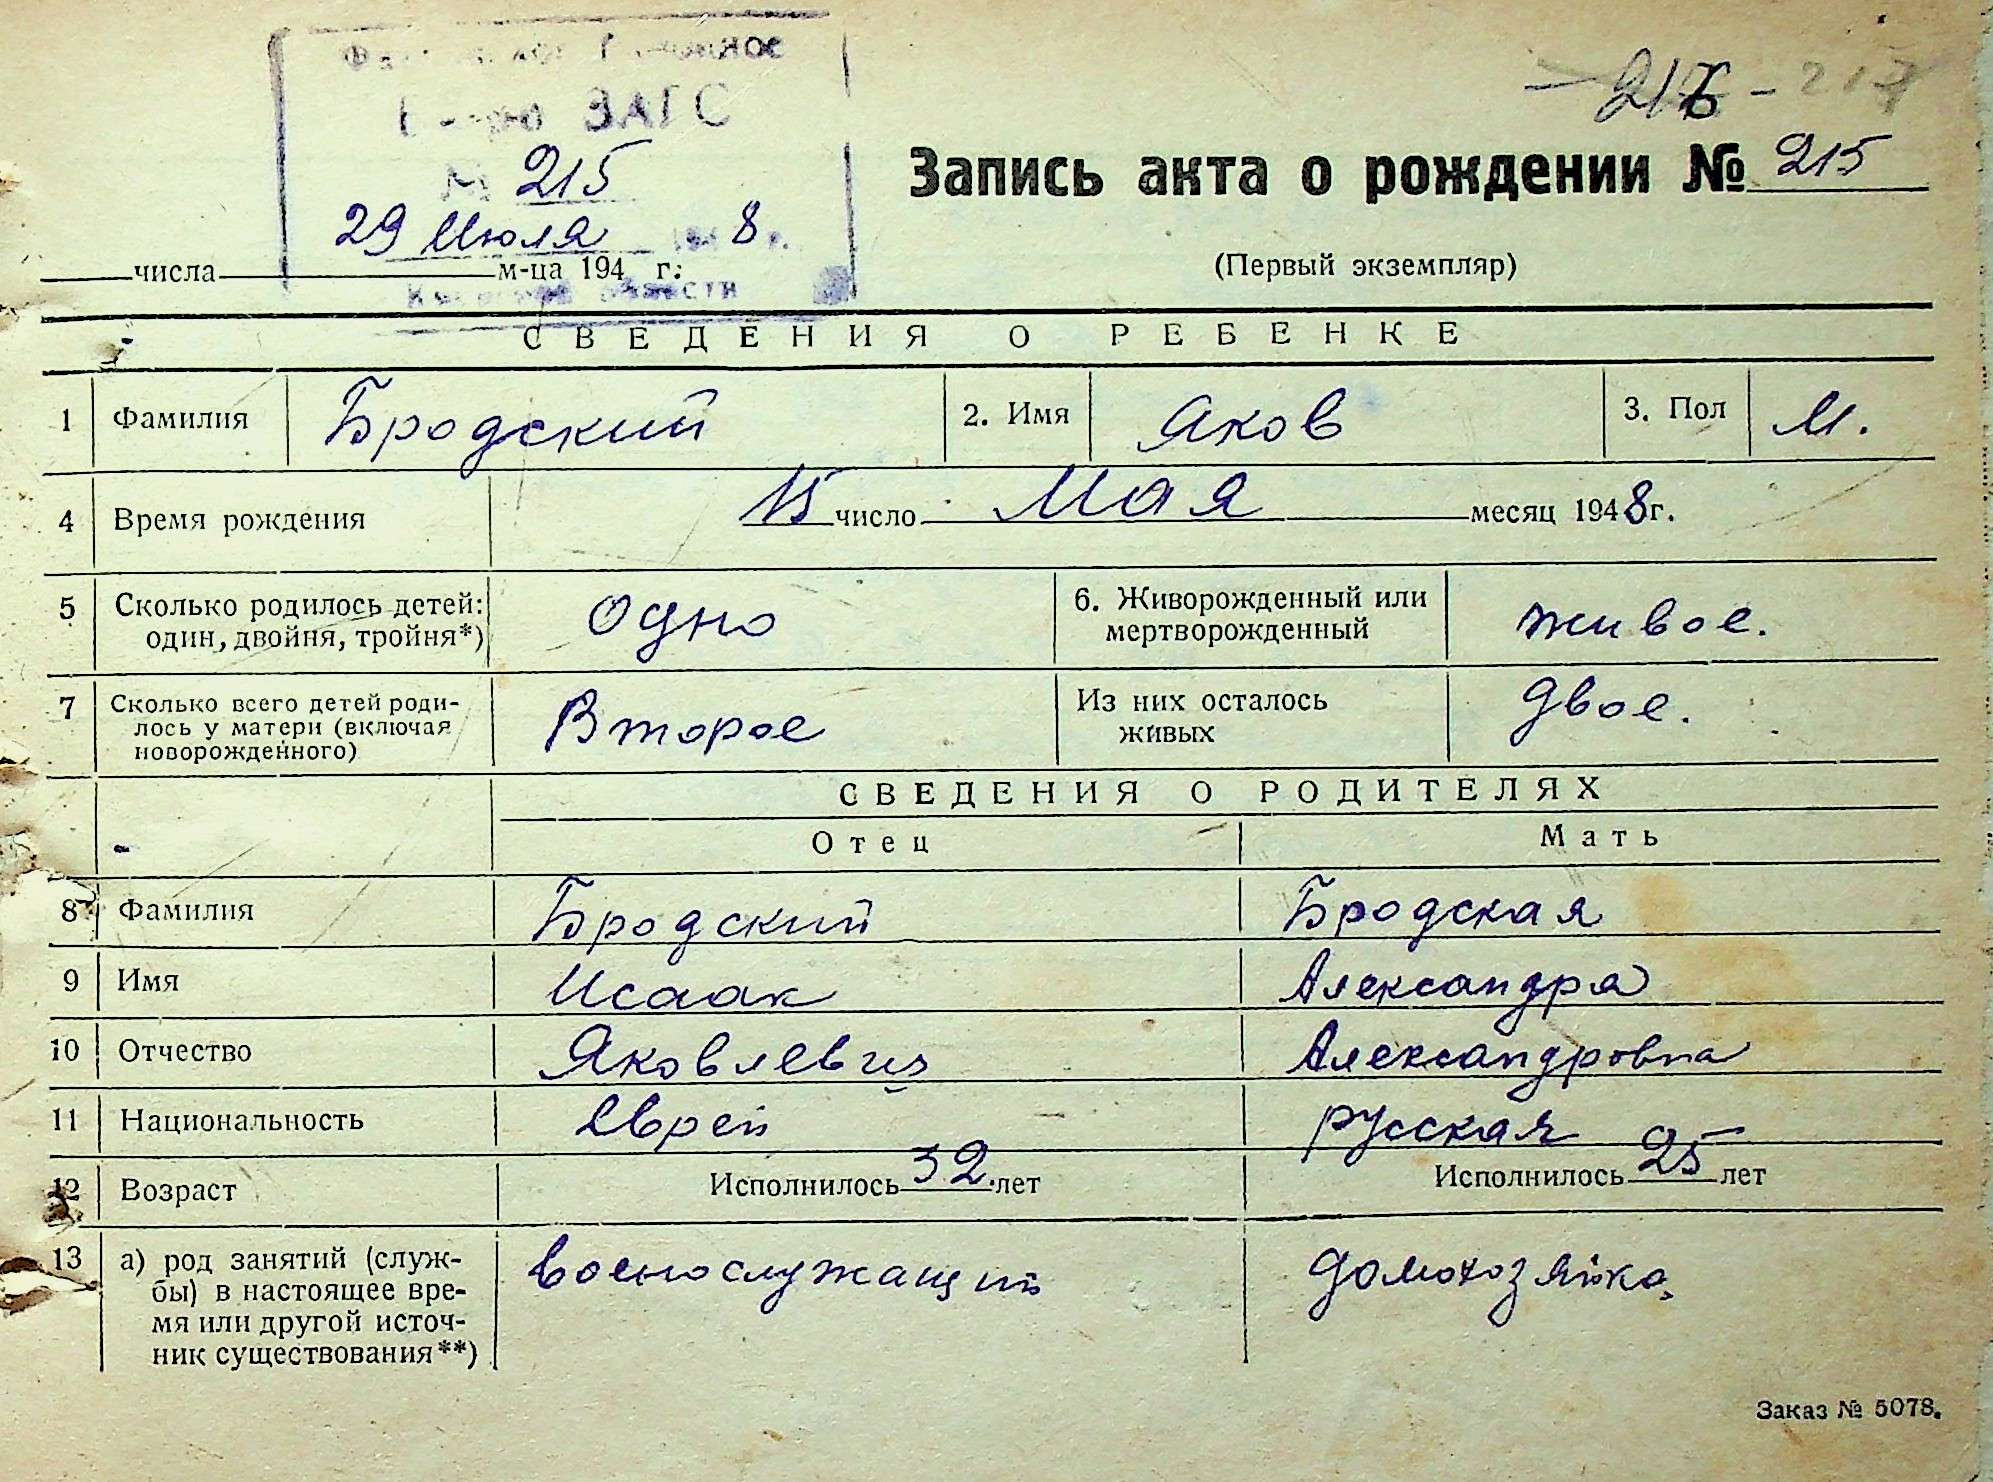 216 - 217
Бюро ЗАГС
№ 215
29 Июля 1948 г.
области
Запись акта о рождении № 215
числа м-ца 194 г.
(Первый экземпляр)
СВЕДЕНИЯ О РЕБЕНКЕ
1 Фамилия Бродский 2. Имя Яков 3. Пол М.
4 Время рождения 15 число Мая месяц 1948 г.
5 Сколько родилось детей: Одно 6. Живорожденный или живое.
один, двойня, тройня*) мертворожденный
7 Сколько всего детей роди- Второе Из них осталось двое.
лось у матери (включая живых
новорожденного)
СВЕДЕНИЯ О РОДИТЕЛЯХ
Отец Мать
8 Фамилия Бродский Бродская
9 Имя Исаак Александра
10 Отчество Яковлевич Александровна
11 Национальность Еврей русская
12 Возраст Исполнилось 32 лет Исполнилось 25 лет
13 а) род занятий (служ- военослужащий домохозяйка
бы) в настоящее вре-
мя или другой источ-
ник существования**)
Заказ № 5078.